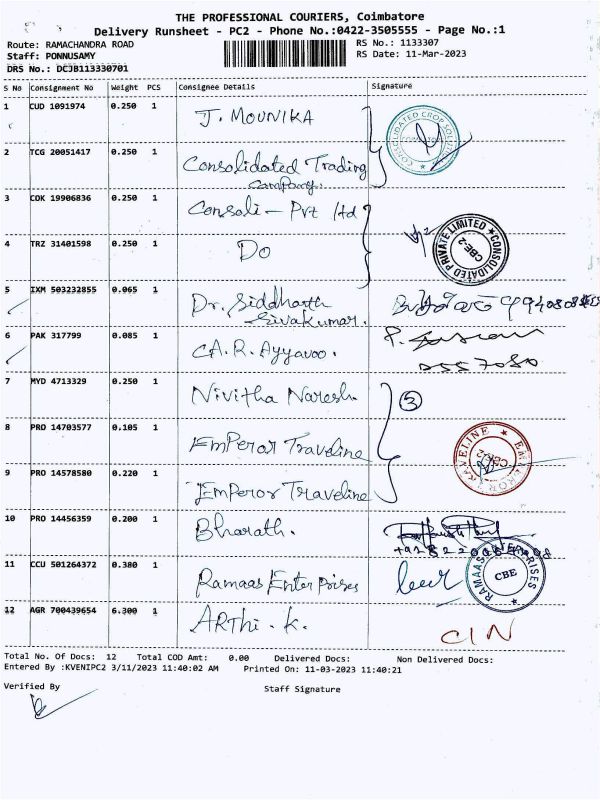 THE PROFESSIONAL COURIERS, Coimbatore
Delivery Runsheet - PC2 - Phone No.:0422-3505555 - Page No.:1
Route: RAMACHANDRA ROAD
RS No.: 1133307
Staff: PONNUSAMY
RS Date: 11-Mar-2023
DRS No.: DCJB113330701
S No Consignment No Weight PCS Consignee Details Signature
1 CUD 1091974 0.250 1 J. MOUNIKA
2 TCG 20051417 0.250 1 Consolidated Trading
Company.
3 COK 19906836 0.250 1 Consoli - Pvt ltd
4 TRZ 31401598 0.250 1 Do
CONSOLIDATED PRIVATE LIMITED ★ CBE-2
5 IXM 503232855 0.065 1 Dr. Siddharth
Sivakumar.
6 PAK 317799 0.085 1 CA. R. Ayyavoo.
7 MYD 4713329 0.250 1 Nivitha Naresh. 3
8 PRO 14703577 0.105 1 Emperor Traveline
9 PRO 14578580 0.220 1 Emperor Traveline
10 PRO 14456359 0.200 1 Bharath.
11 CCU 501264372 0.380 1 Ramaas Enter Prises
RAMAAS ENTERPRISES ★ CBE
12 AGR 700439654 6.300 1 ARTHI. K.
CIN
Total No. Of Docs: 12 Total COD Amt: 0.00 Delivered Docs: Non Delivered Docs:
Entered By :KVENIPC2 3/11/2023 11:40:02 AM Printed On: 11-03-2023 11:40:21
Verified By
Staff Signature